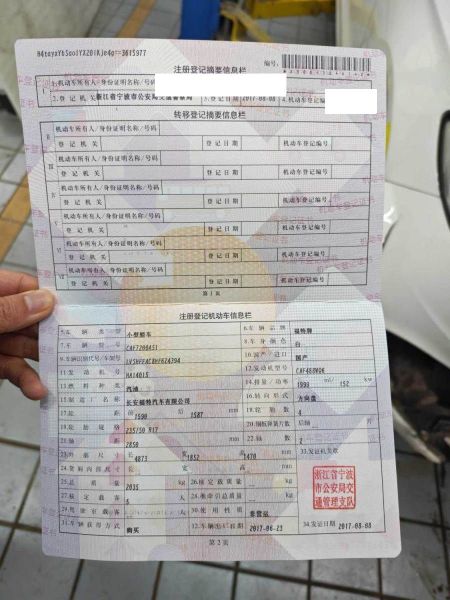 注册登记摘要信息栏
编号:
1.机动车所有人/身份证明名称/号码
2.登记机关 浙江省宁波市公安局交通管理局 3.登记日期 2017-08-08 4.机动车登记编号
转移登记摘要信息栏
机动车所有人/身份证明名称/号码
登记机关 登记日期 机动车登记编号
机动车所有人/身份证明名称/号码
登记机关 登记日期 机动车登记编号
机动车所有人/身份证明名称/号码
登记机关 登记日期 机动车登记编号
机动车所有人/身份证明名称/号码
登记机关 登记日期 机动车登记编号
机动车所有人/身份证明名称/号码
登记机关 登记日期 机动车登记编号
机动车所有人/身份证明名称/号码
登记机关 登记日期 机动车登记编号
第1页
注册登记机动车信息栏
5.车辆类型 小型轿车 6.车辆品牌 福特牌
7.车辆型号 CAF7200A51 8.车身颜色 白
9.车辆识别代号/车架号 10.国产/进口 国产
11.发动机号 12.发动机型号 CAF488WQ6
13.燃料种类 汽油 14.排量/功率 ml/ 152 kw
15.制造厂名称 长安福特汽车有限公司 16.转向形式 方向盘
17.轮距 前 1590 后 1587 mm 18.轮胎数 4
19.轮胎规格 235/50 R17 20.钢板弹簧片数 后轴 片
21.轴距 2850 mm 22.轴数 2
23.外廓尺寸 长 4873 宽 1852 高 1470 mm 33.发证机关章
24.货厢内部尺寸 长 宽 高 mm
25.总质量 2035 kg 26.核定载质量 kg
27.核定载客 5 人 28.准牵引总质量 kg
29.驾驶室载客 人 30.使用性质 非营运
31.车辆获得方式 购买 32.车辆出厂日期 2017-06-23 34.发证日期 2017-08-08
浙江省宁波
市公安局交
通管理支队
第2页